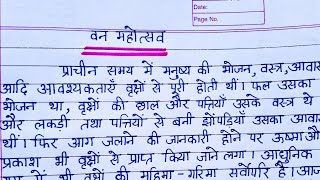 Date
Page No.
वन महोत्सव
प्राचीन समय में मनुष्य की भोजन, वस्त्र, आवास
आदि आवश्यकताएँ वृक्षों से पूरी होती थीं। फल उसका
भोजन था, वृक्षों की छाल और पत्तियाँ उसके वस्त्र थे
और लकड़ी तथा पत्तियों से बनी झोंपड़ियाँ उसका आवास
थीं। फिर आग जलाने की जानकारी होने पर ऊष्मा और
प्रकाश भी वृक्षों से प्राप्त किया जाने लगा। आधुनिक
में भी वृक्षों की महिमा-गरिमा सर्वोपरि है। आज